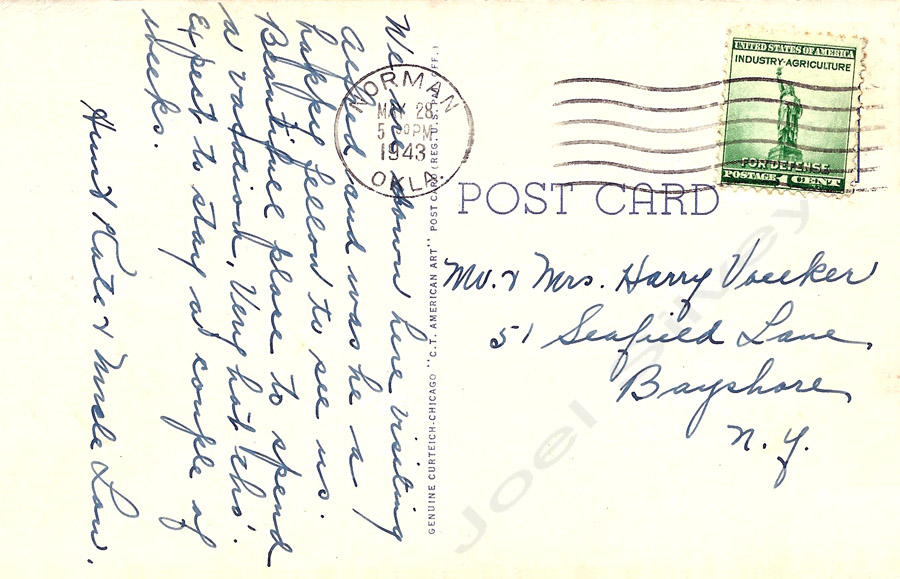 We are down here visiting
Alfred and was he a
happy fellow to see us.
Beautiful place to spend
a vacation, Very hot tho'.
Expect to stay a couple of
weeks.
Aunt Kate & Uncle Lou.
GENUINE CURTEICH-CHICAGO "C.T. AMERICAN ART" POST CARD (REG. U.S. OFF.)
NORMAN
MAY 28
5 PM
1943
OKLA
UNITED STATES OF AMERICA
INDUSTRY-AGRICULTURE
FOR DEFENSE
POSTAGE 1 CENT
POST CARD
Mr. & Mrs. Harry Voelker
51 Seafield Lane,
Bayshore
N.Y.
Joel